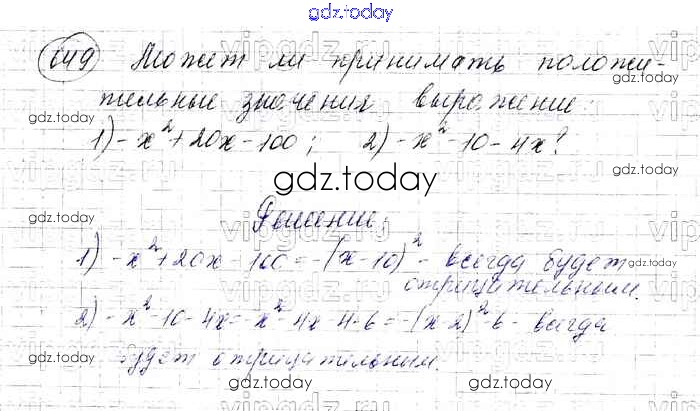 gdz.today
649 Может ли принимать положи-
тельные значения выражение:
1) -x²+20x-100; 2) -x²-10-4x?
gdz.today
Решение:
1) -x²+20x-100=-(x-10)² - всегда будет
отрицательным.
2) -x²-10-4x=-x²-4x-4-6=-(x-2)²-6 - всегда
будет отрицательным.